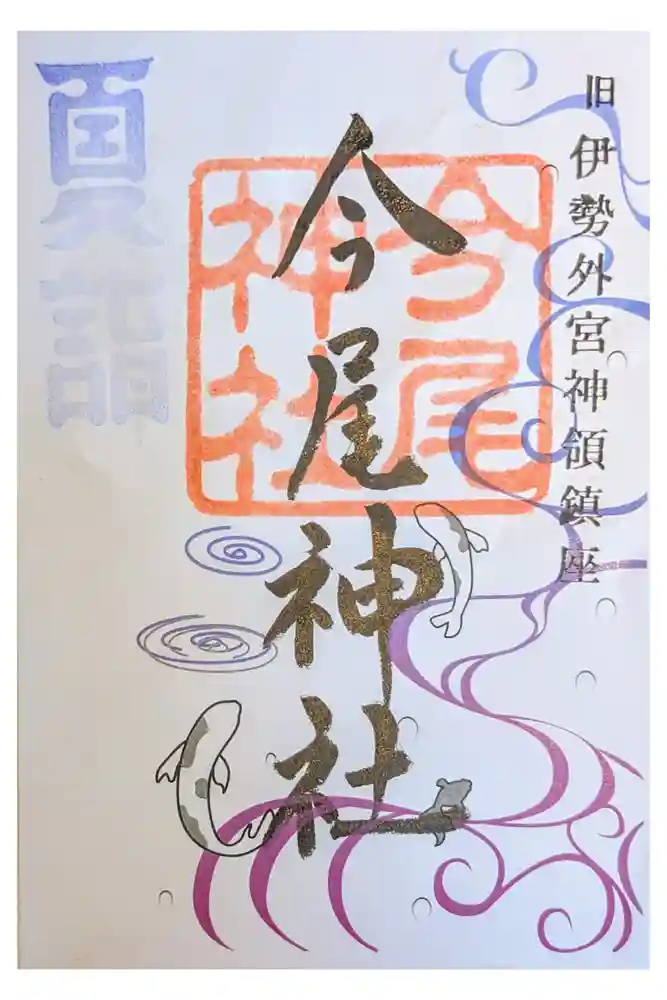 旧 伊勢外宮神領鎮座
今尾神社
今尾
神社
夏詣